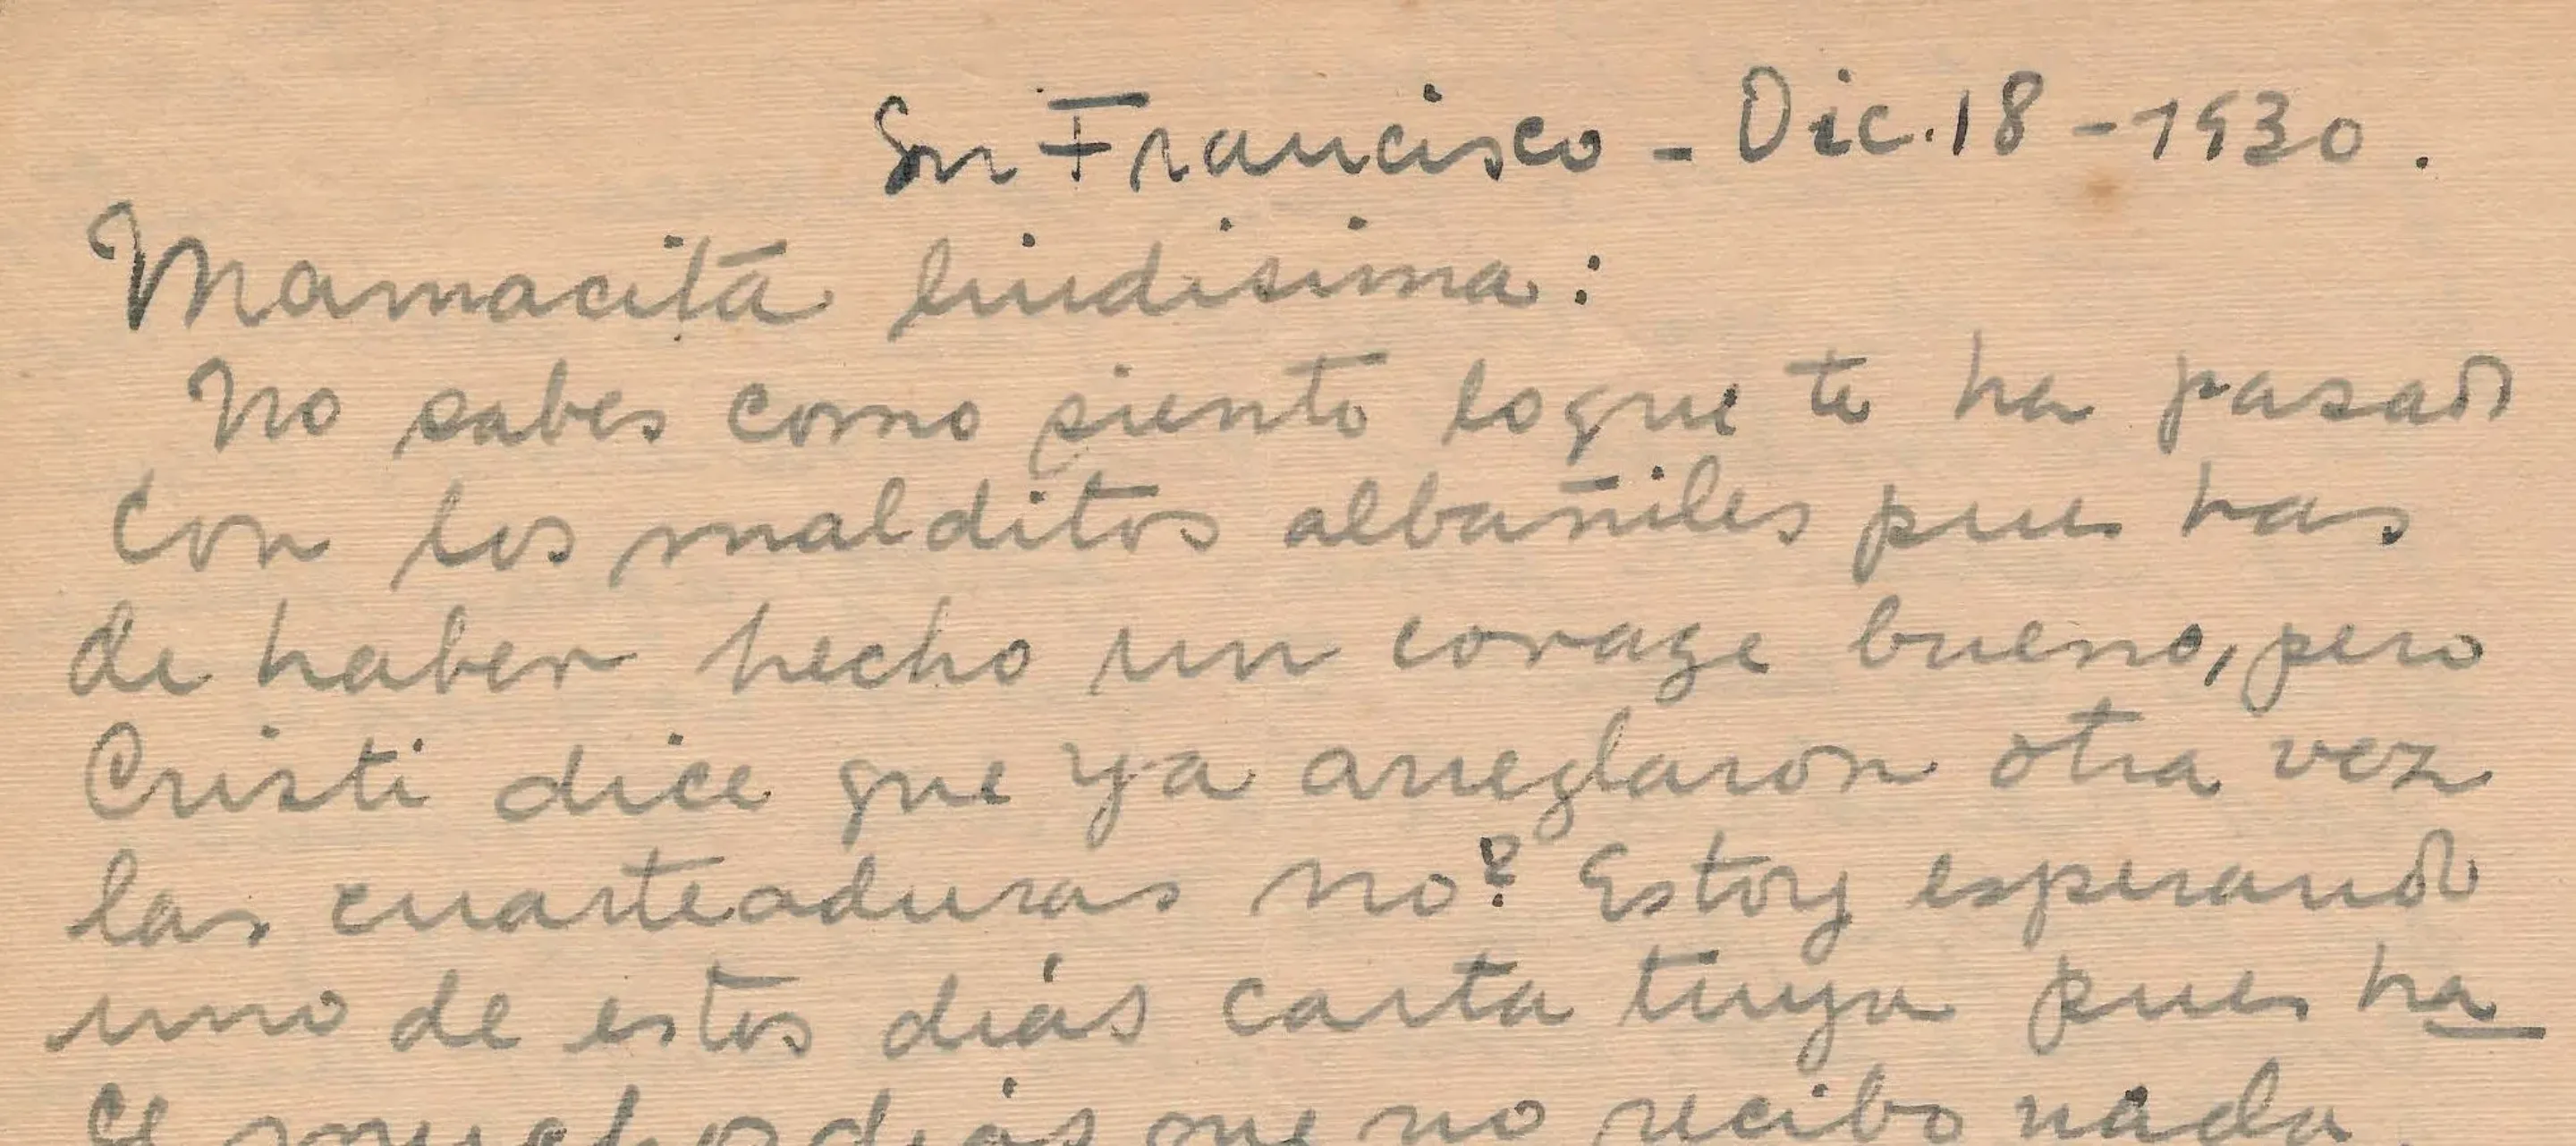 Sn Francisco - Dic. 18 - 1930.
Mamacita lindisima:
No sabes como siento loque te ha pasado
con los malditos albañiles pues has
de haber hecho un corage bueno, pero
Cristi dice que ya arreglaron otra vez
las cuarteaduras no? Estoy esperando
uno de estos diás carta tuya pues ha
ce muchos diás que no recibo nada.